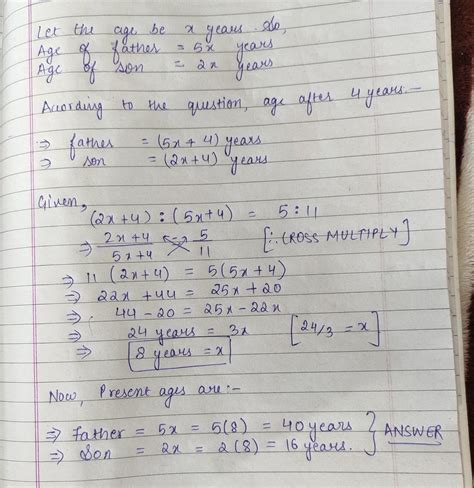 Let the age be x years. So,
Age of father = 5x years
Age of son = 2x years
According to the question, age after 4 years. -
⇒ father = (5x + 4) years
⇒ son = (2x+4) years
Given,
(2x+4) : (5x+4) = 5 : 11
⇒ 2x+4 / 5x+4 = 5 / 11 [∵ CROSS MULTIPLY]
⇒ 11 (2x+4) = 5(5x+4)
⇒ 22x + 44 = 25x + 20
⇒ 44 - 20 = 25x - 22x
⇒ 24 years = 3x [24/3 = x]
⇒ 8 years = x
Now, Present ages are:-
⇒ father = 5x = 5(8) = 40 years
⇒ Son = 2x = 2(8) = 16 years. } ANSWER